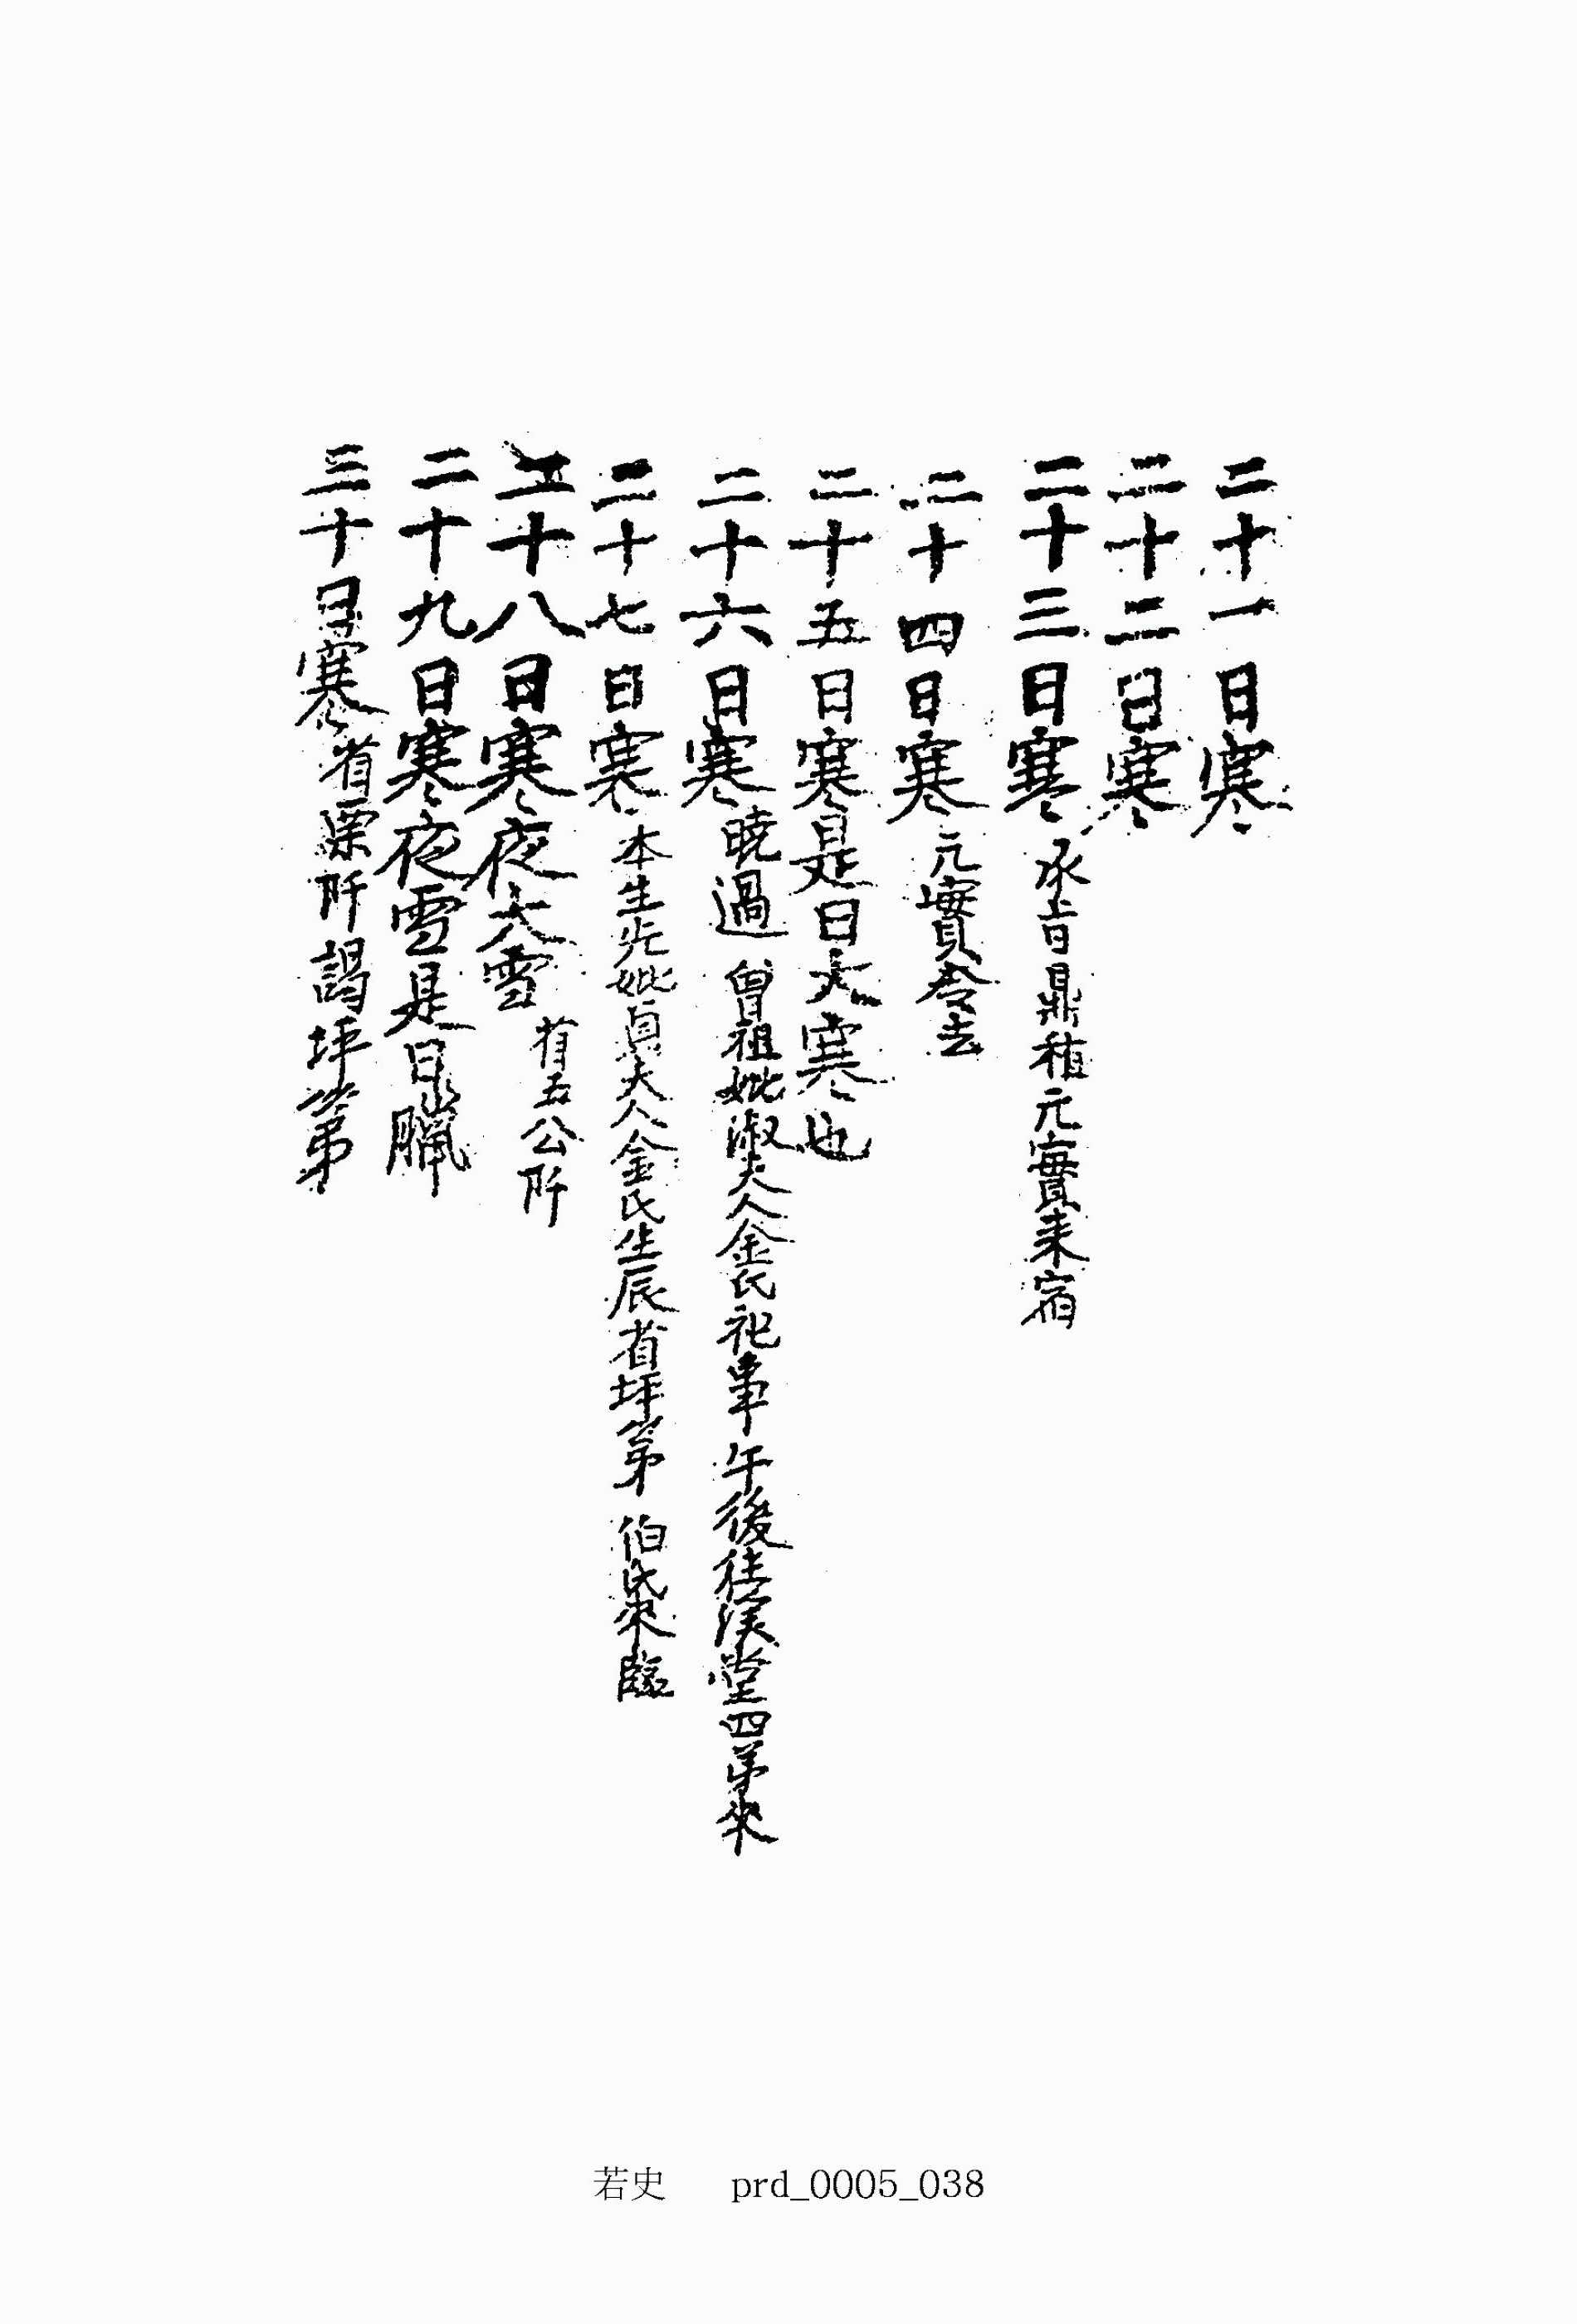 二十一日寒
二十二日寒
二十三日寒 承旨鼎稙元實来宿
二十四日寒 元實参去
二十五日寒是日大寒也
二十六日寒 曉過 曾祖妣淑夫人金氏祀事 午後往漢堂四弟來
二十七日寒 本生先妣貞夫人金氏生辰省坪第 伯氏來臨
二十八日寒夜大雪 省五公所
二十九日寒夜雪是日臘
三十日寒 省栗所謁坪第
若史 prd_0005_038